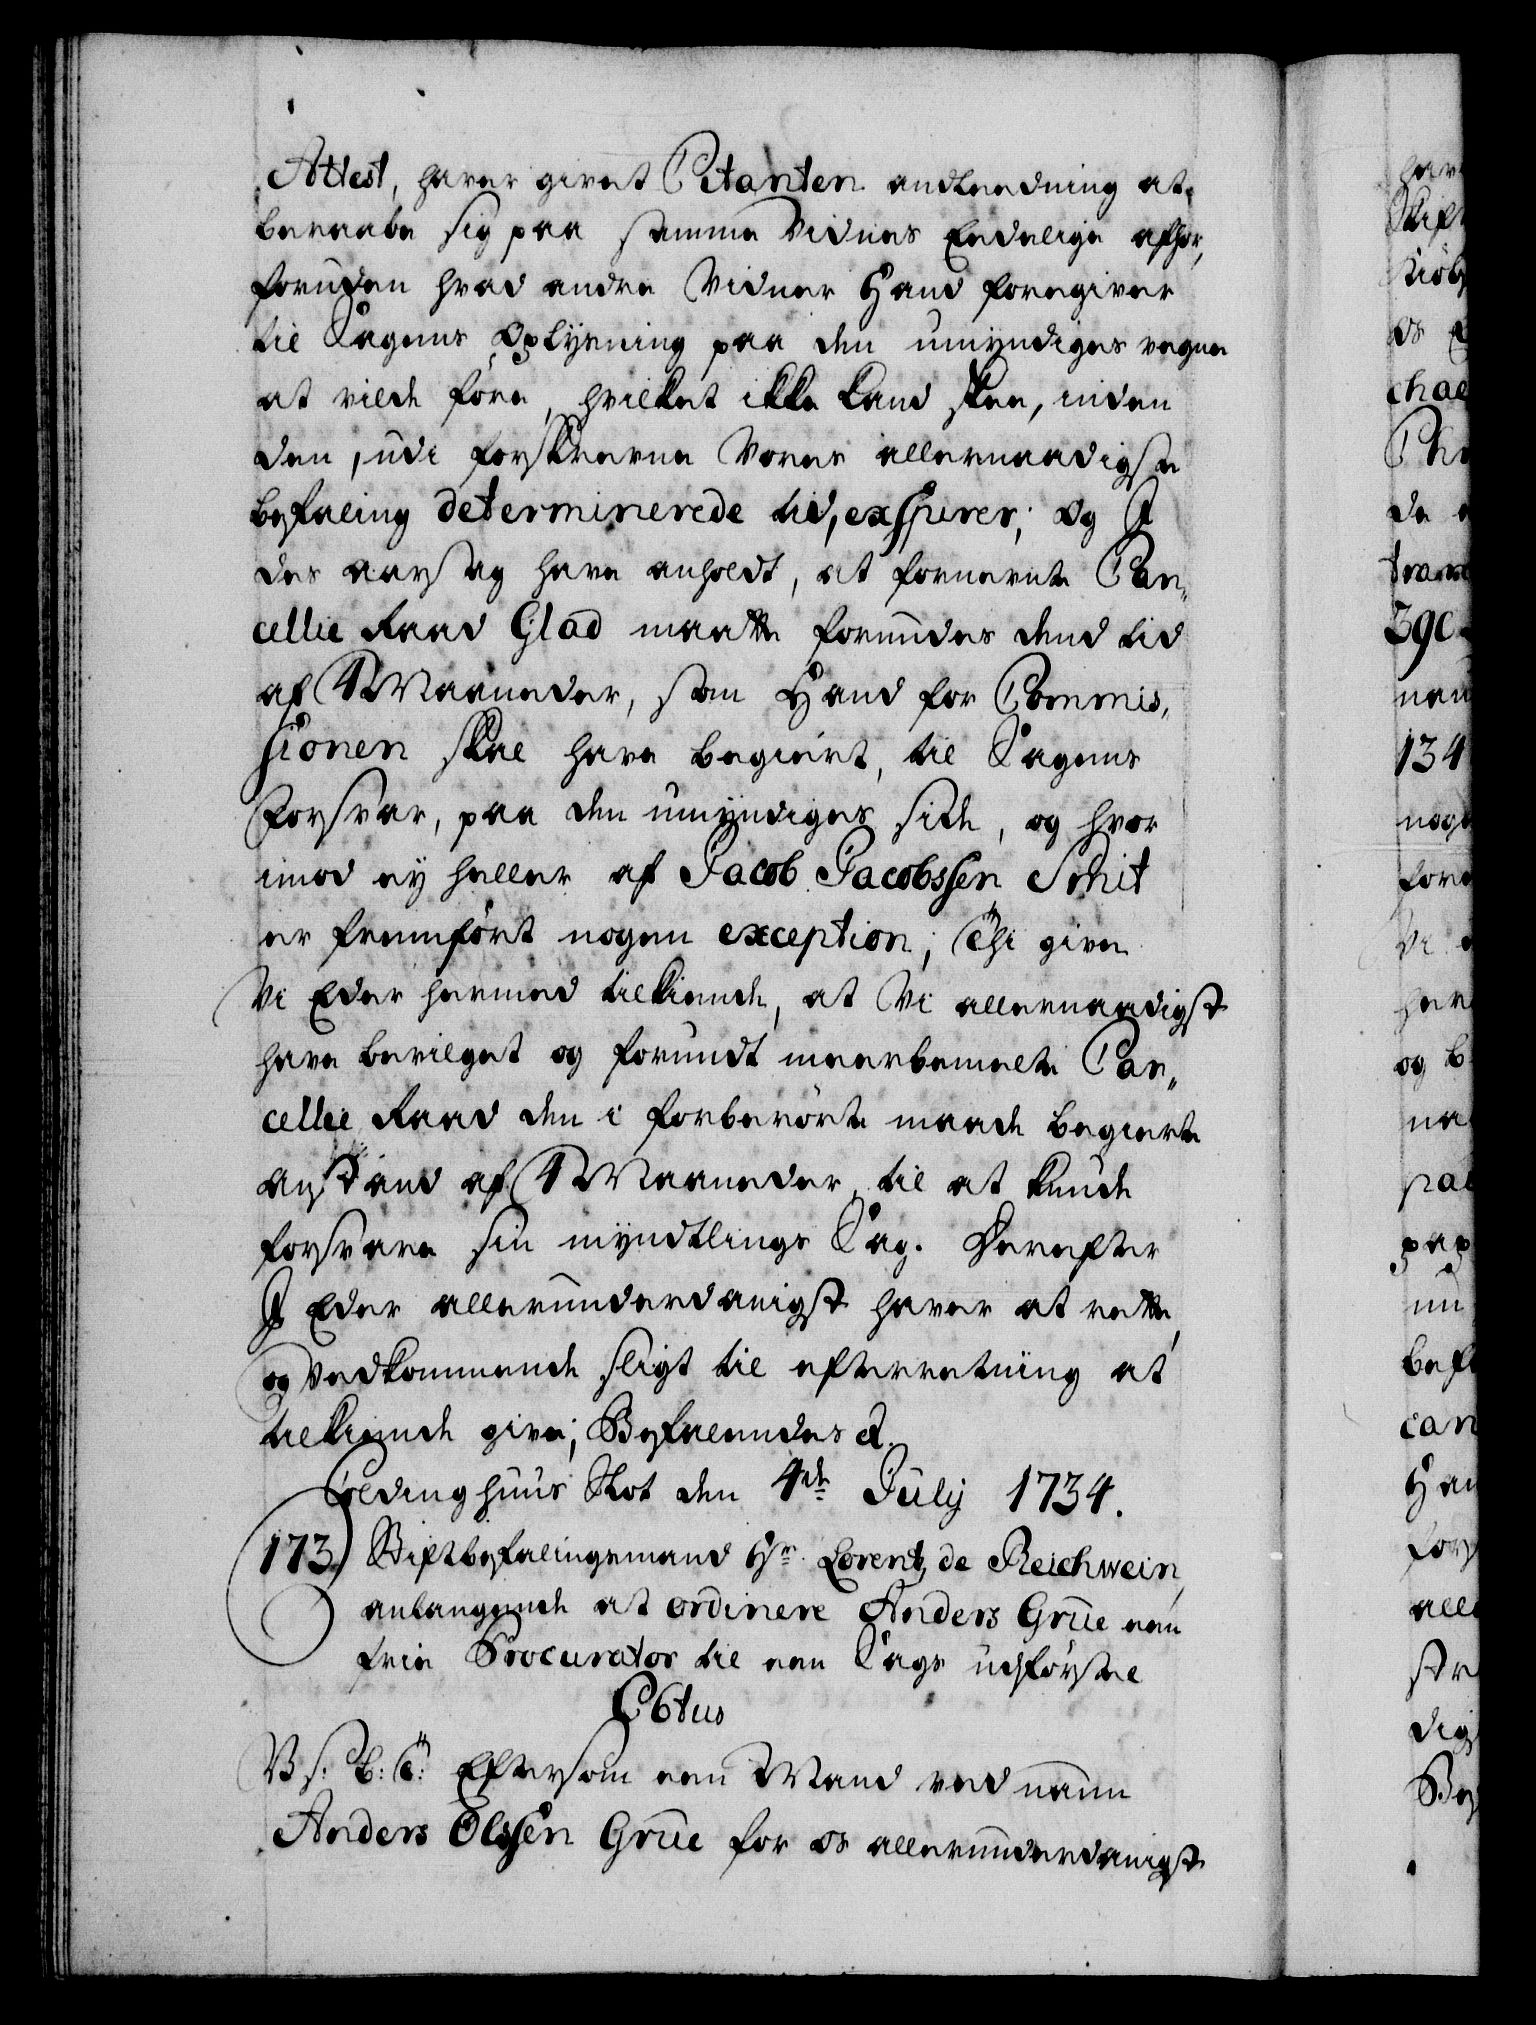 Attest, haver givet Citanten andleedning at
beraabe sig paa samme Vidnes Eedelige afhør,
foruden hvad andre Vidner Hand foregiver
til Sagens Oplysning paa den umyndiges vegne
at vilde føre, hvilket ikke kand skee, inden
den, udi forskrevne Vores allernaadigste
befaling determinerede tid, exspirer; og I
des aarsag have anholdt, at fornevnte Can„
cellie Raad Glad maatte forundes dend tid
af 4 Maaneder, som Hand for Commis,
sionen skal have begiert, til Sagens
Forsvar, paa den umyndiges side, og hvor
imod ey heller af Jacob Jacobssen Smit
er fremført nogen exception; Thi give
Vi Eder hermed tilkiende, at Vi allernaadigst
have bevilget og forundt meerbemelte Can„
cellie Raad den i forberørte maade begierte
anstand af 4 Maaneder, til at kunde
forsvare sin myndtlings Sag. Derefter
I Eder allerunderdanigst haver at rette,
og Vedkommende sligt til efterretning at
tilkiende give; Befalendes &.
Coldinghuus Slot den 4de July 1734.
173) Stiftbefalingsmand Hr. Lorentz de Reichwein,
anlangende at ordinere Anders Grüe een
frie Procurator til een Sags udførsel
C6tus
V s: B: T: Eftersom een Mand ved nafn
Anders Olssen Grüe for os allerunderdanigst